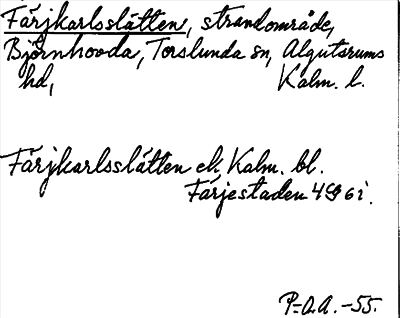 Färjkarlsslätten, strandområde,
Björnhovda, Torslunda sn, Algutsrums
hd, Kalm. l.
Färjkarlsslätten ek, Kalm. bl.
Färjestaden 4G 6i.
P-O.A. -55.